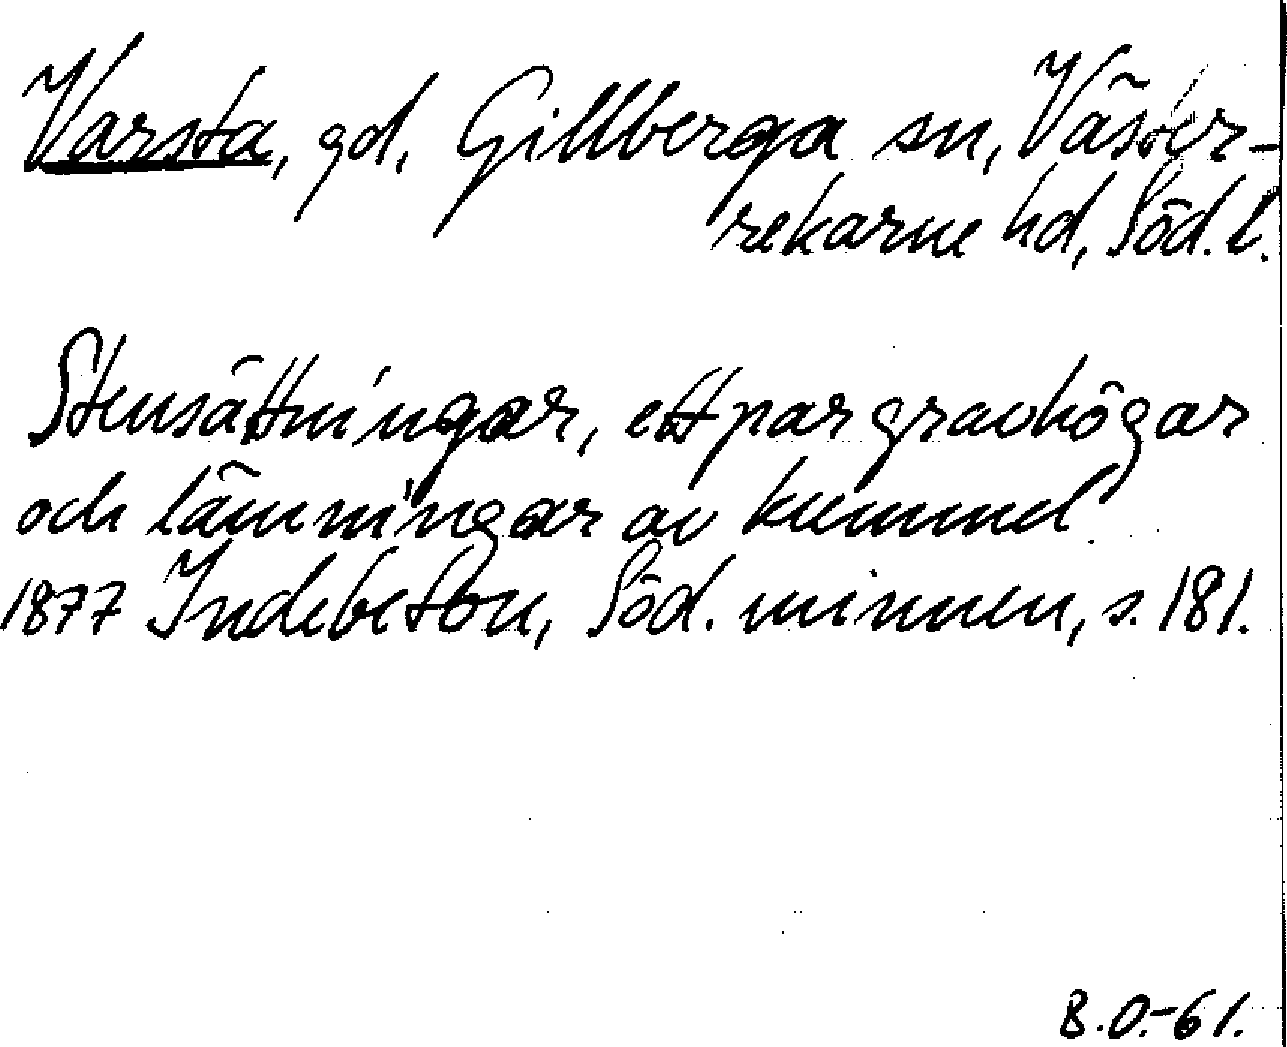 Varsta, gd, Gillberga sn, Väster-
rekarne hd, Söd. l.
Stensättningar, ett par gravhögar
och lämningar av kummel.
1877 Indebetou, Söd. minnen, s. 181.
B.O.-61.